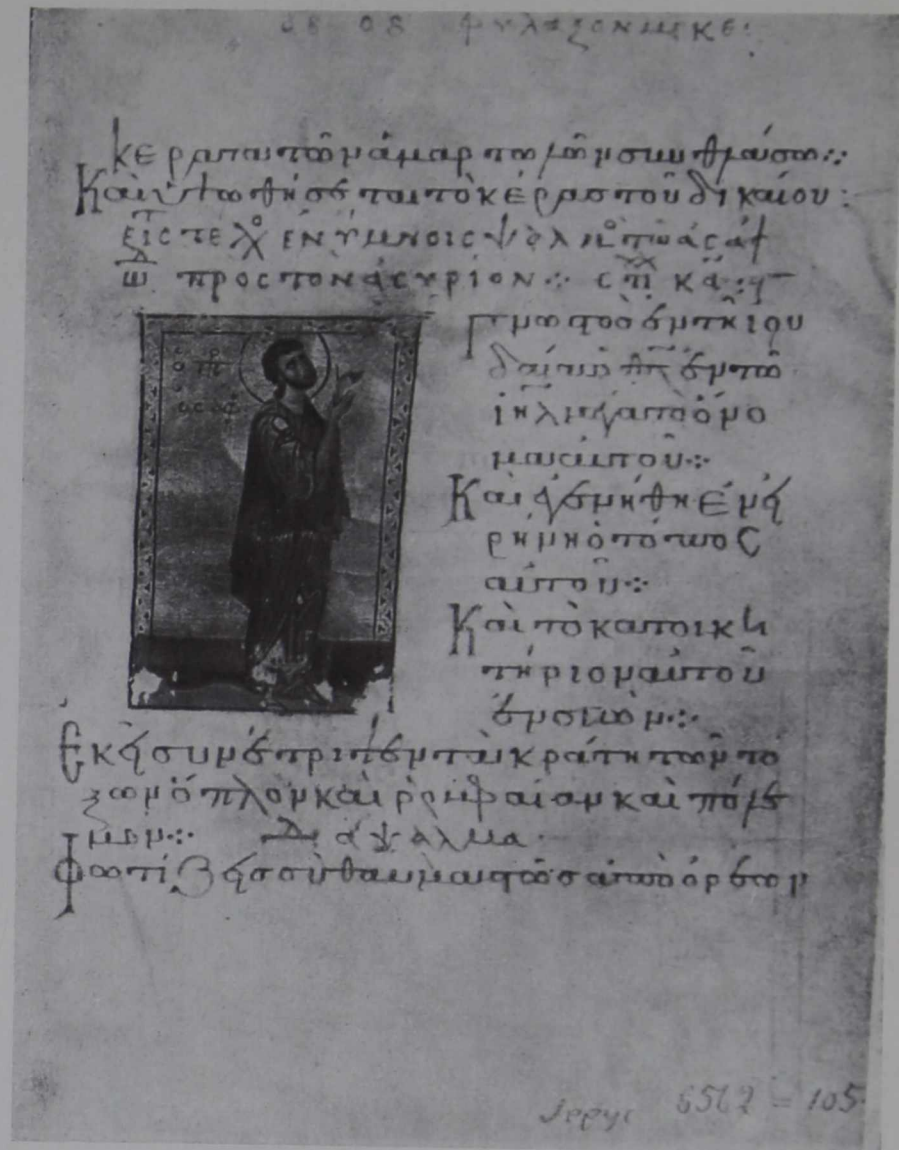 κερατα τῶν ἁμαρτωλῶν συνθλάσω:·
Καὶ ὑψωθήσεται τὸ κέρας τοῦ δικαίου:
εἰς τὸ τελ ἐν ὕμνοις ψαλμὸς τῶ ἀσάφ
ὠδ πρὸς τὸν ἀσύριον·:·
Γνωστὸς ἐν τῆ ἰου
δαία ὁ θς ἐν τῶ
ἰηλ μέγα τὸ ὄνο
μα αὐτοῦ·:·
Καὶ ἐγενήθη ἐν εἰ
ρήνη ὁ τόπος
αὐτοῦ·:·
Καὶ τὸ κατοικη
τήριον αὐτοῦ
ἐν σιών·:·
Ἐκεῖ συνέτριψεν τὰ κράτη τῶν τό
ξων ὅπλον καὶ ῥομφαίαν καὶ πόλε
μον·:· Διάψαλμα·
Φωτίζεις σὺ θαυμαστῶς ἀπὸ ὀρέων
6562 = 105